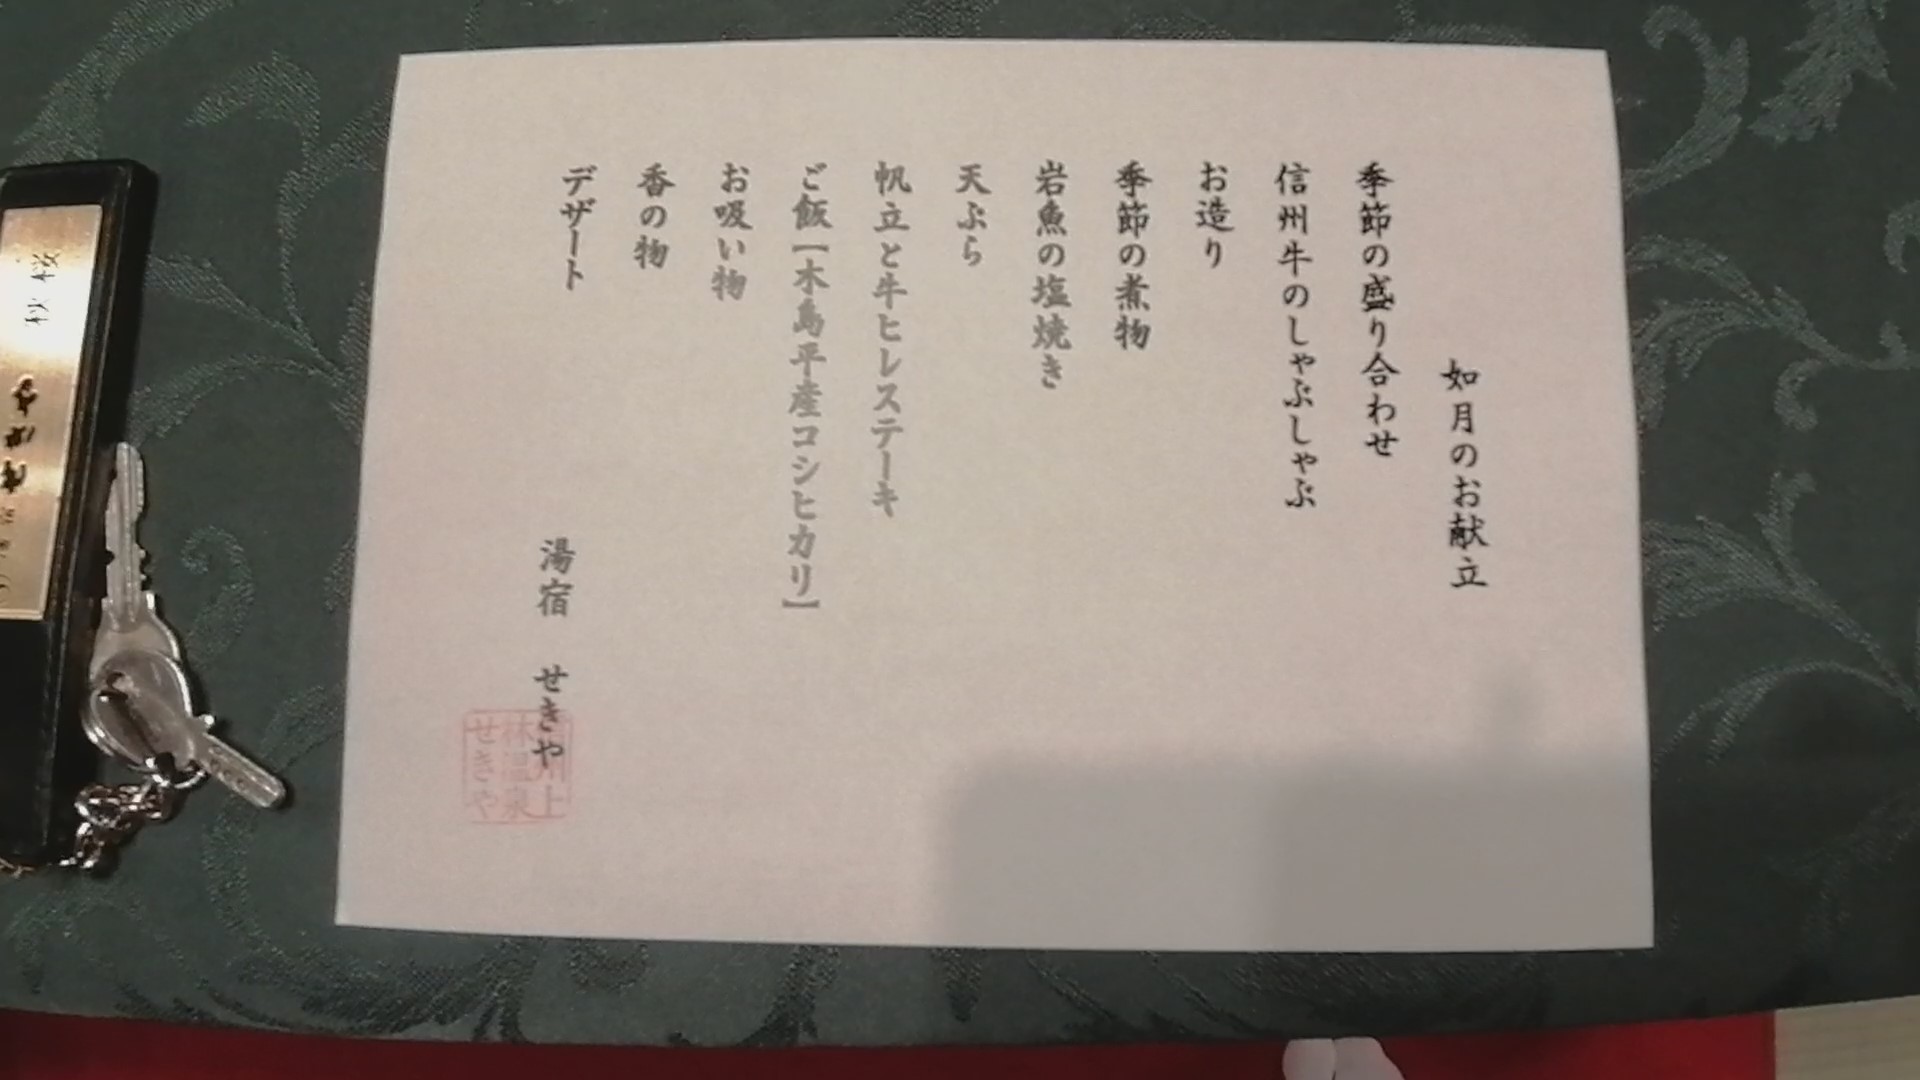 如月のお献立
季節の盛り合わせ
信州牛のしゃぶしゃぶ
お造り
季節の煮物
岩魚の塩焼き
天ぷら
帆立と牛ヒレステーキ
ご飯【木島平産コシヒカリ】
お吸い物
香の物
デザート
湯宿　せきや
信州上
林温泉
せきや